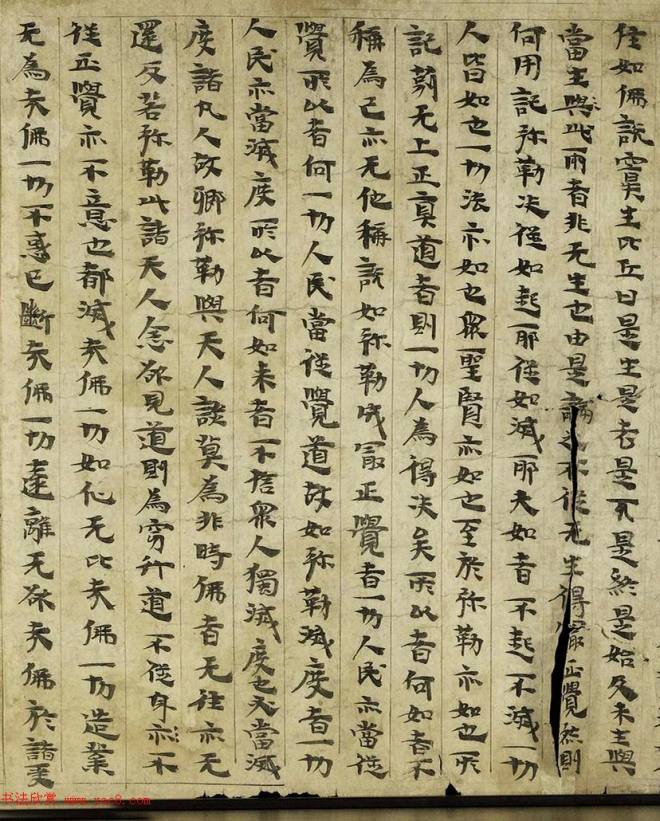 住如佛說實生比丘曰是生是老是死是終是始及未生與
當生與此兩者非无生也由是論之不從无生得㝡正覺然則
何用記弥勒决從如起耶從如滅耶夫如者不起不滅一切
人皆如也一切法亦如也眾聖賢亦如也至於弥勒亦如也所
記莂无上正真道者則一切人為得决矣所以者何如者不
稱為已亦无他稱說如弥勒成㝡正覺者一切人民亦當從
覺所以者何一切人民當從覺道故如弥勒滅度者一切
人民亦當滅度所以者何如来者不捨眾人獨滅度也必當滅
度諸凡人故卿弥勒與天人談莫為非時佛者无往亦无
還反若弥勒此諸天人念欲見道則為穷行道不從身亦不
從正覺亦不意也都滅夫佛一切如化无比夫佛一切造業
无為夫佛一切不惑已斷夫佛一切遠離无欲夫佛於諸受
书法欣赏 www.yac8.com